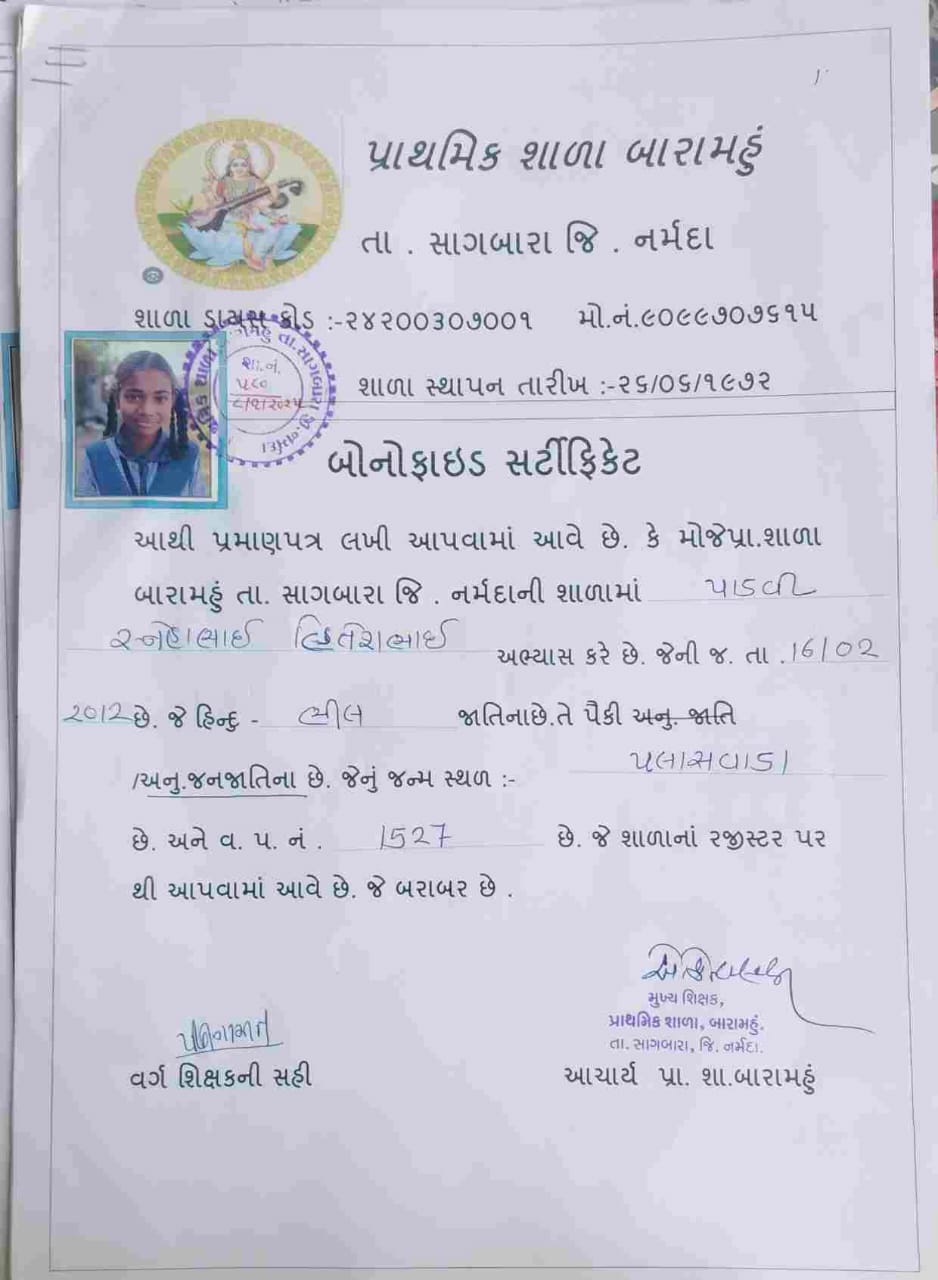 પ્રાથમિક શાળા બારામહું
તા . સાગબારા જિ . નર્મદા
શાળા ડાયસ કોડ :-૨૪૨૦૦૩૦૭૦૦૧ મો.નં.૯૦૯૯૭૦૭૬૧૫
તા.સાગબારા જી.નર્મદા
શા.નં.
શાળા સ્થાપન તારીખ :-૨૬/૦૬/૧૯૭૨
બોનોફાઇડ સર્ટીફિકેટ
આથી પ્રમાણપત્ર લખી આપવામાં આવે છે. કે મોજેપ્રા.શાળા
બારામહું તા. સાગબારા જિ . નર્મદાની શાળામાં પાડવી
અભ્યાસ કરે છે. જેની જ. તા .16/02
2012 છે. જે હિન્દુ - ભીલ જાતિનાછે.તે પૈકી અનુ. જાતિ
/અનુ.જનજાતિના છે. જેનું જન્મ સ્થળ :- પલાસવાડા
છે. અને વ. પ. નં . 1527 છે. જે શાળાનાં રજીસ્ટર પર
થી આપવામાં આવે છે. જે બરાબર છે .
મુખ્ય શિક્ષક,
પ્રાથમિક શાળા, બારામહું.
તા. સાગબારા, જિ. નર્મદા.
વર્ગ શિક્ષકની સહી આચાર્ય પ્રા. શા.બારામહું